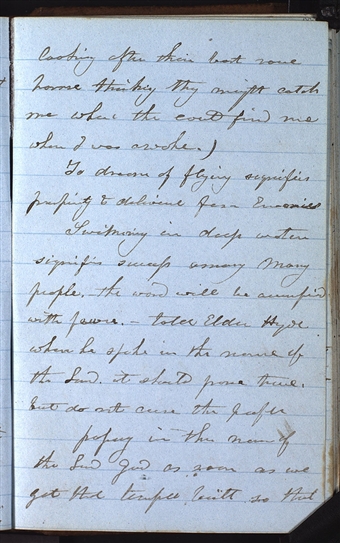 looking after their boat some
horse thinking they might catch
me when the could find me
when I was awoke.)
To dream of flying signifies
prosperity & deliverence from Enemies
Swiming in deep water
signifies success among many
people, - the word will be accompanied
with power. - told Elder Hyde
when he spoke in the name of
the Lord. it should prove true.
but do not curse the people
prophecy in the name of
the Lord God as soon as we
get the temple built so that